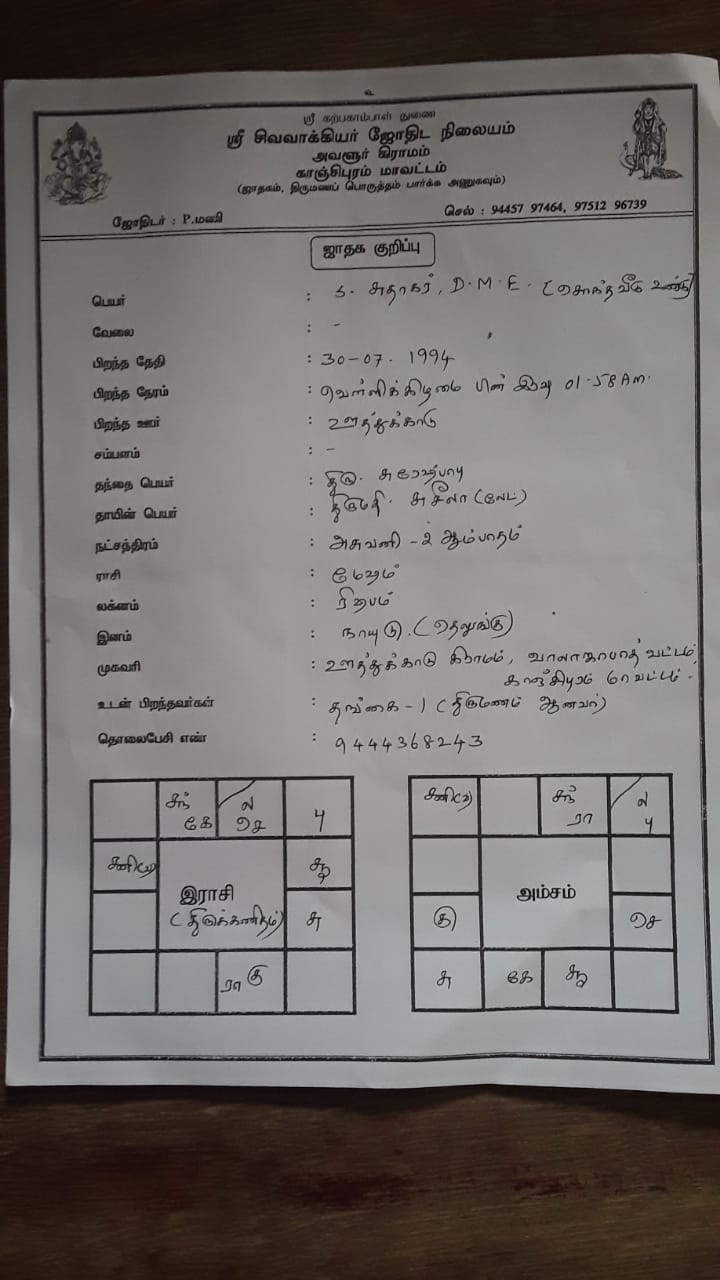 உ
ஸ்ரீ கற்பகாம்பாள் துணை
ஸ்ரீ சிவவாக்கியர் ஜோதிட நிலையம்
அவளூர் கிராமம்
காஞ்சிபுரம் மாவட்டம்
(ஜாதகம், திருமணப் பொருத்தம் பார்க்க அணுகவும்)
ஜோதிடர் : P.மணி செல் : 94457 97464, 97512 96739
ஜாதக குறிப்பு
பெயர் : S. சுதாகர், D.M.E. (சொந்த வீடு உண்டு)
வேலை : -
பிறந்த தேதி : 30-07-1994
பிறந்த நேரம் : வெள்ளிக்கிழமை பின் இரவு 01-58 Am.
பிறந்த ஊர் : ஊத்துக்காடு
சம்பளம் : -
தந்தை பெயர் : திரு. சுரேஷ்பாபு
தாயின் பெயர் : திருமதி. சுசீலா (லேட்)
நட்சத்திரம் : அசுவனி - 2 ஆம்பாதம்
ராசி : மேஷம்
லக்னம் : ரிஷபம்
இனம் : நாயுடு. (தெலுங்கு)
முகவரி : ஊத்துக்காடு கிராமம், வாலாஜாபாத் வட்டம்,
காஞ்சிபுரம் மாவட்டம்.
உடன் பிறந்தவர்கள் : தங்கை - 1 (திருமணம் ஆனவர்)
தொலைபேசி எண் : 9444368243
சந் கே
ல செ
பு
சனி(வ)
சூ
இராசி
(திருக்கணிதம்)
சு
ரா கு
சனி(வ)
சந் ரா
ல பு
அம்சம்
கு
செ
சு
கே
சூ